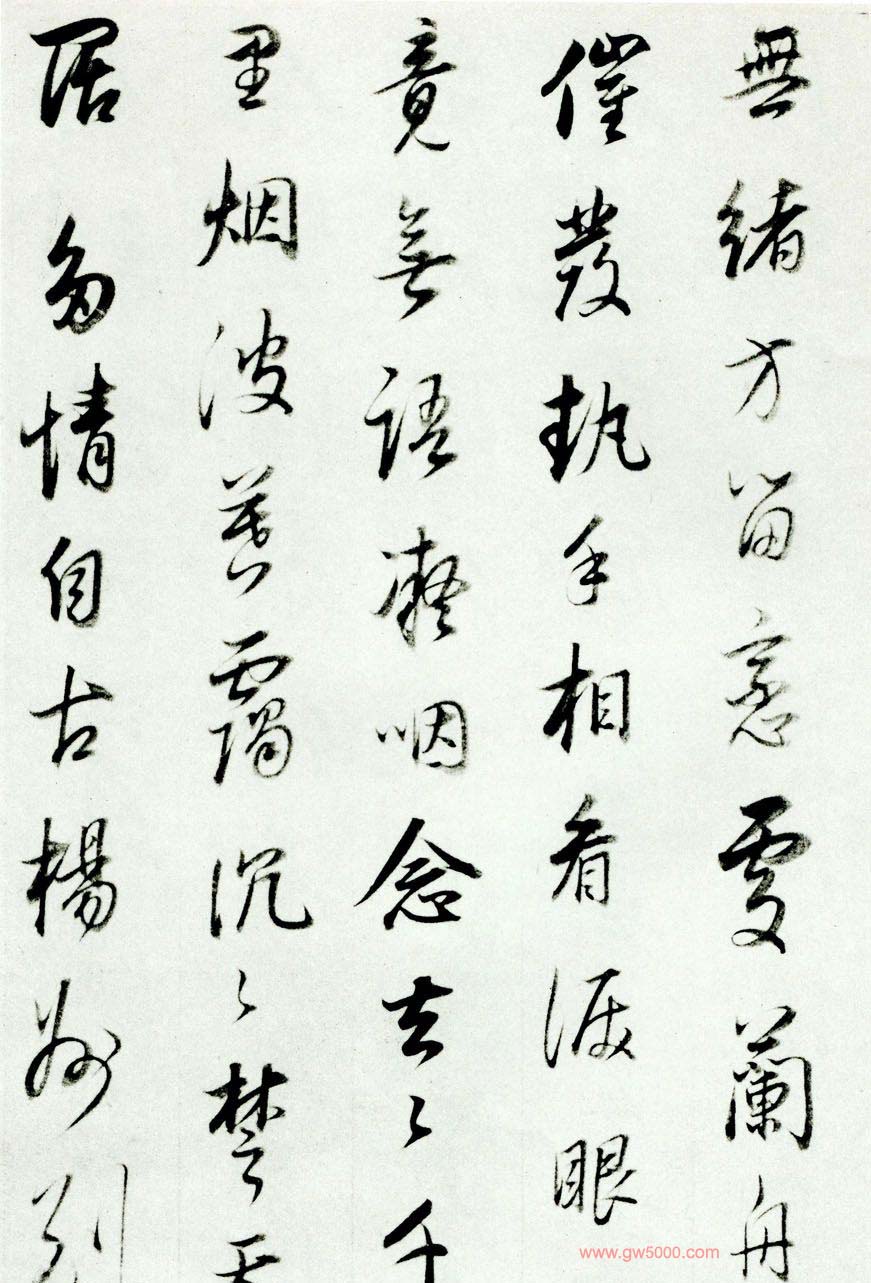 無緒方留戀處蘭舟
催發執手相看淚眼
竟無語凝咽念去々千
里烟波暮靄沉々楚天
闊多情自古傷離別
www.gw5000.com